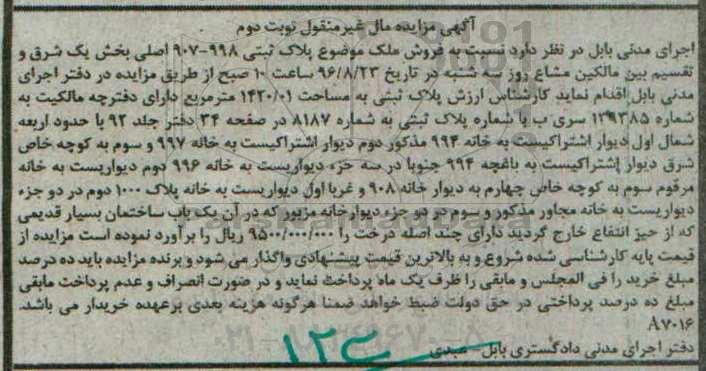 آگهی مزایده مال غیرمنقول نوبت دوم
اجرای مدنی بابل در نظر دارد نسبت به فروش ملک موضوع پلاک ثبتی ۹۹۸-۹۰۷ اصلی بخش یک شرق و
تقسیم بین مالکین مشاع روز سه شنبه در تاریخ ۹۶/۸/۲۳ ساعت ۱۰ صبح از طریق مزایده در دفتر اجرای
مدنی بابل اقدام نماید کارشناس ارزش پلاک ثبتی به مساحت ۱۴۲۰/۰۱ مترمربع دارای دفترچه مالکیت به
شماره ۱۳۹۳۸۵ سری ب با شماره پلاک ثبتی به شماره ۸۱۸۷ در صفحه ۳۴ دفتر جلد ۹۲ با حدود اربعه
شمال اول دیوار اشتراکیست به خانه ۹۹۴ مذکور دوم دیوار اشتراکیست به خانه ۹۹۷ و سوم به کوچه خاص
شرق دیوار اشتراکیست به باغچه ۹۹۴ جنوبا در سه جزء دیواریست به خانه ۹۹۶ دوم دیواریست به خانه
مرقوم سوم به کوچه خاص چهارم به دیوار خانه ۹۰۸ و غربا اول دیواریست به خانه پلاک ۱۰۰۰ دوم در دو جزء
دیواریست به خانه مجاور مذکور و سوم در دو جزء دیوارخانه مزبور که در آن یک باب ساختمان بسیار قدیمی
که از حیز انتفاع خارج گردید دارای چند اصله درخت را ۹۵۰۰/۰۰۰/۰۰۰ ریال را برآورد نموده است مزایده از
قیمت پایه کارشناسی شده شروع و به بالاترین قیمت پیشنهادی واگذار می شود و برنده مزایده باید ده درصد
مبلغ خرید را فی المجلس و مابقی را ظرف یک ماه پرداخت نماید و در صورت انصراف و عدم پرداخت مابقی
مبلغ ده درصد پرداختی در حق دولت ضبط خواهد ضمنا هرگونه هزینه بعدی برعهده خریدار می باشد.
۸۷۰۱۶
دفتر اجرای مدنی دادگستری بابل- عبدی